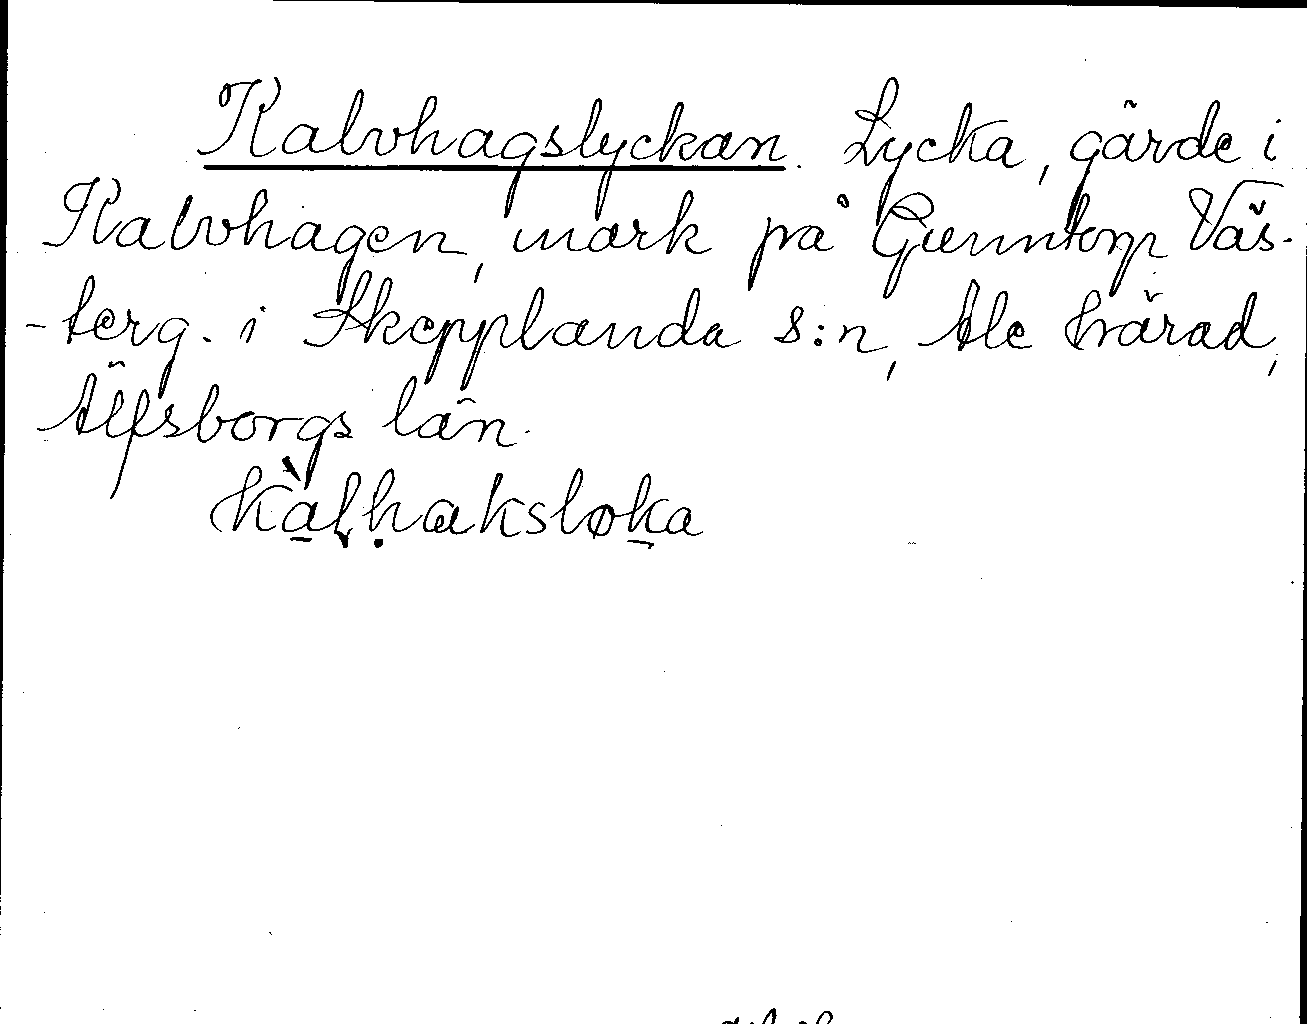 Kalvhagslyckan. Lycka, gärde i
Kalvhagen, mark på Gunntorp Väs-
-terg. i Skepplanda s:n, Ale härad,
Älfsborgs län.
kàlhaksloka